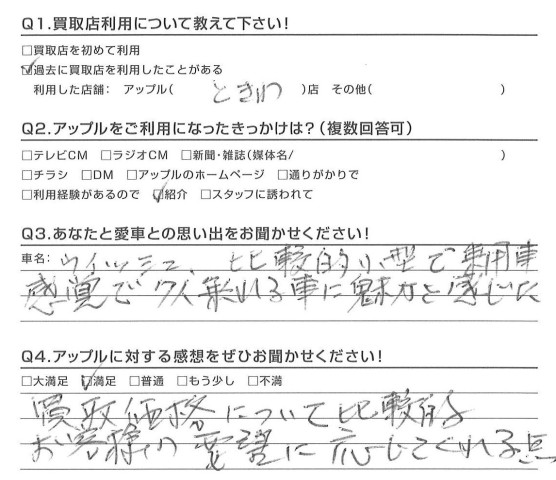 Q1.買取店利用について教えて下さい!
□買取店を初めて利用
☑過去に買取店を利用したことがある
利用した店舗: アップル( ときわ )店 その他( )
Q2.アップルをご利用になったきっかけは?(複数回答可)
□テレビCM □ラジオCM □新聞・雑誌(媒体名/ )
□チラシ □DM □アップルのホームページ □通りがかりで
□利用経験があるので ☑紹介 □スタッフに誘われて
Q3.あなたと愛車との思い出をお聞かせください!
車名: ウィッシュ、比較的小型で乗用車
感覚で7人乗れる車に魅力を感じた
Q4.アップルに対する感想をぜひお聞かせください!
□大満足 ☑満足 □普通 □もう少し □不満
買取価格について比較的
お客様の要望に応じてくれる点